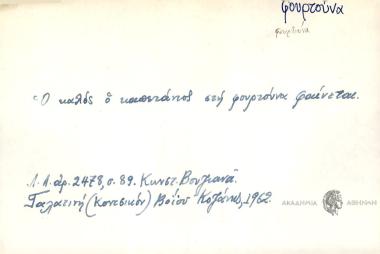 φουρτούνα
φουρτούνα
Ὁ καλός ὁ καπετάνιος στή φουρτούνα φαίνεται.
Λ.Α. ἀρ. 2478, σ. 89. Κωνστ. Βουζιανᾶ
Γαλατινή (Κοντσικόν) Βοΐου Κοζάνης, 1962.
ΑΚΑΔΗΜΙΑ ΑΘΗΝΩΝ